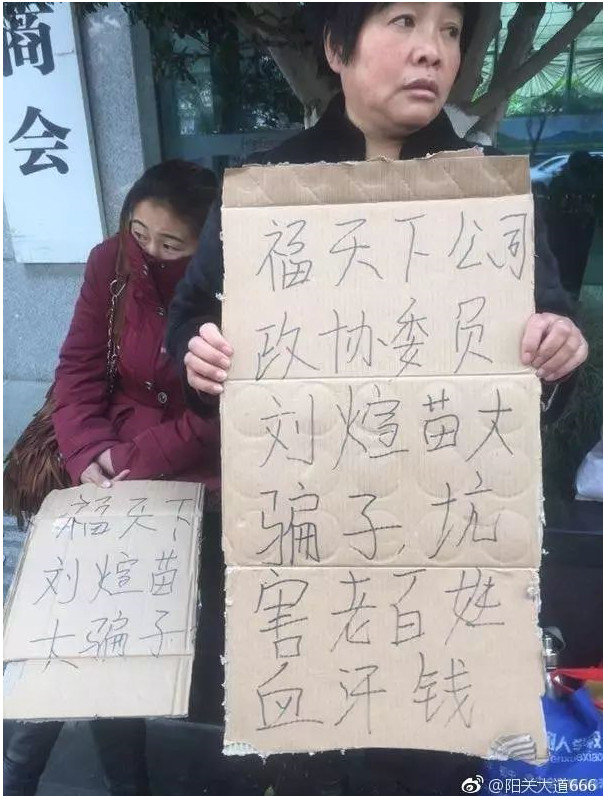 商
会
福天下公司
政协委员
刘煊苗大
骗子,坑
害老百姓
血汗钱
福天下
刘煊苗
大骗子
人学校
@阳关大道666